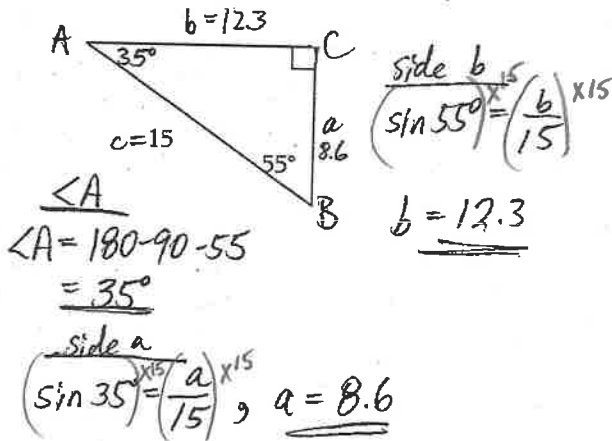 b = 12.3
A
35°
C
c=15
a
8.6
55°
B
side b
(sin 55°)×15 = (b/15)×15
b = 12.3
<A
<A = 180-90-55
= 35°
side a
(sin 35°)×15 = (a/15)×15, a = 8.6